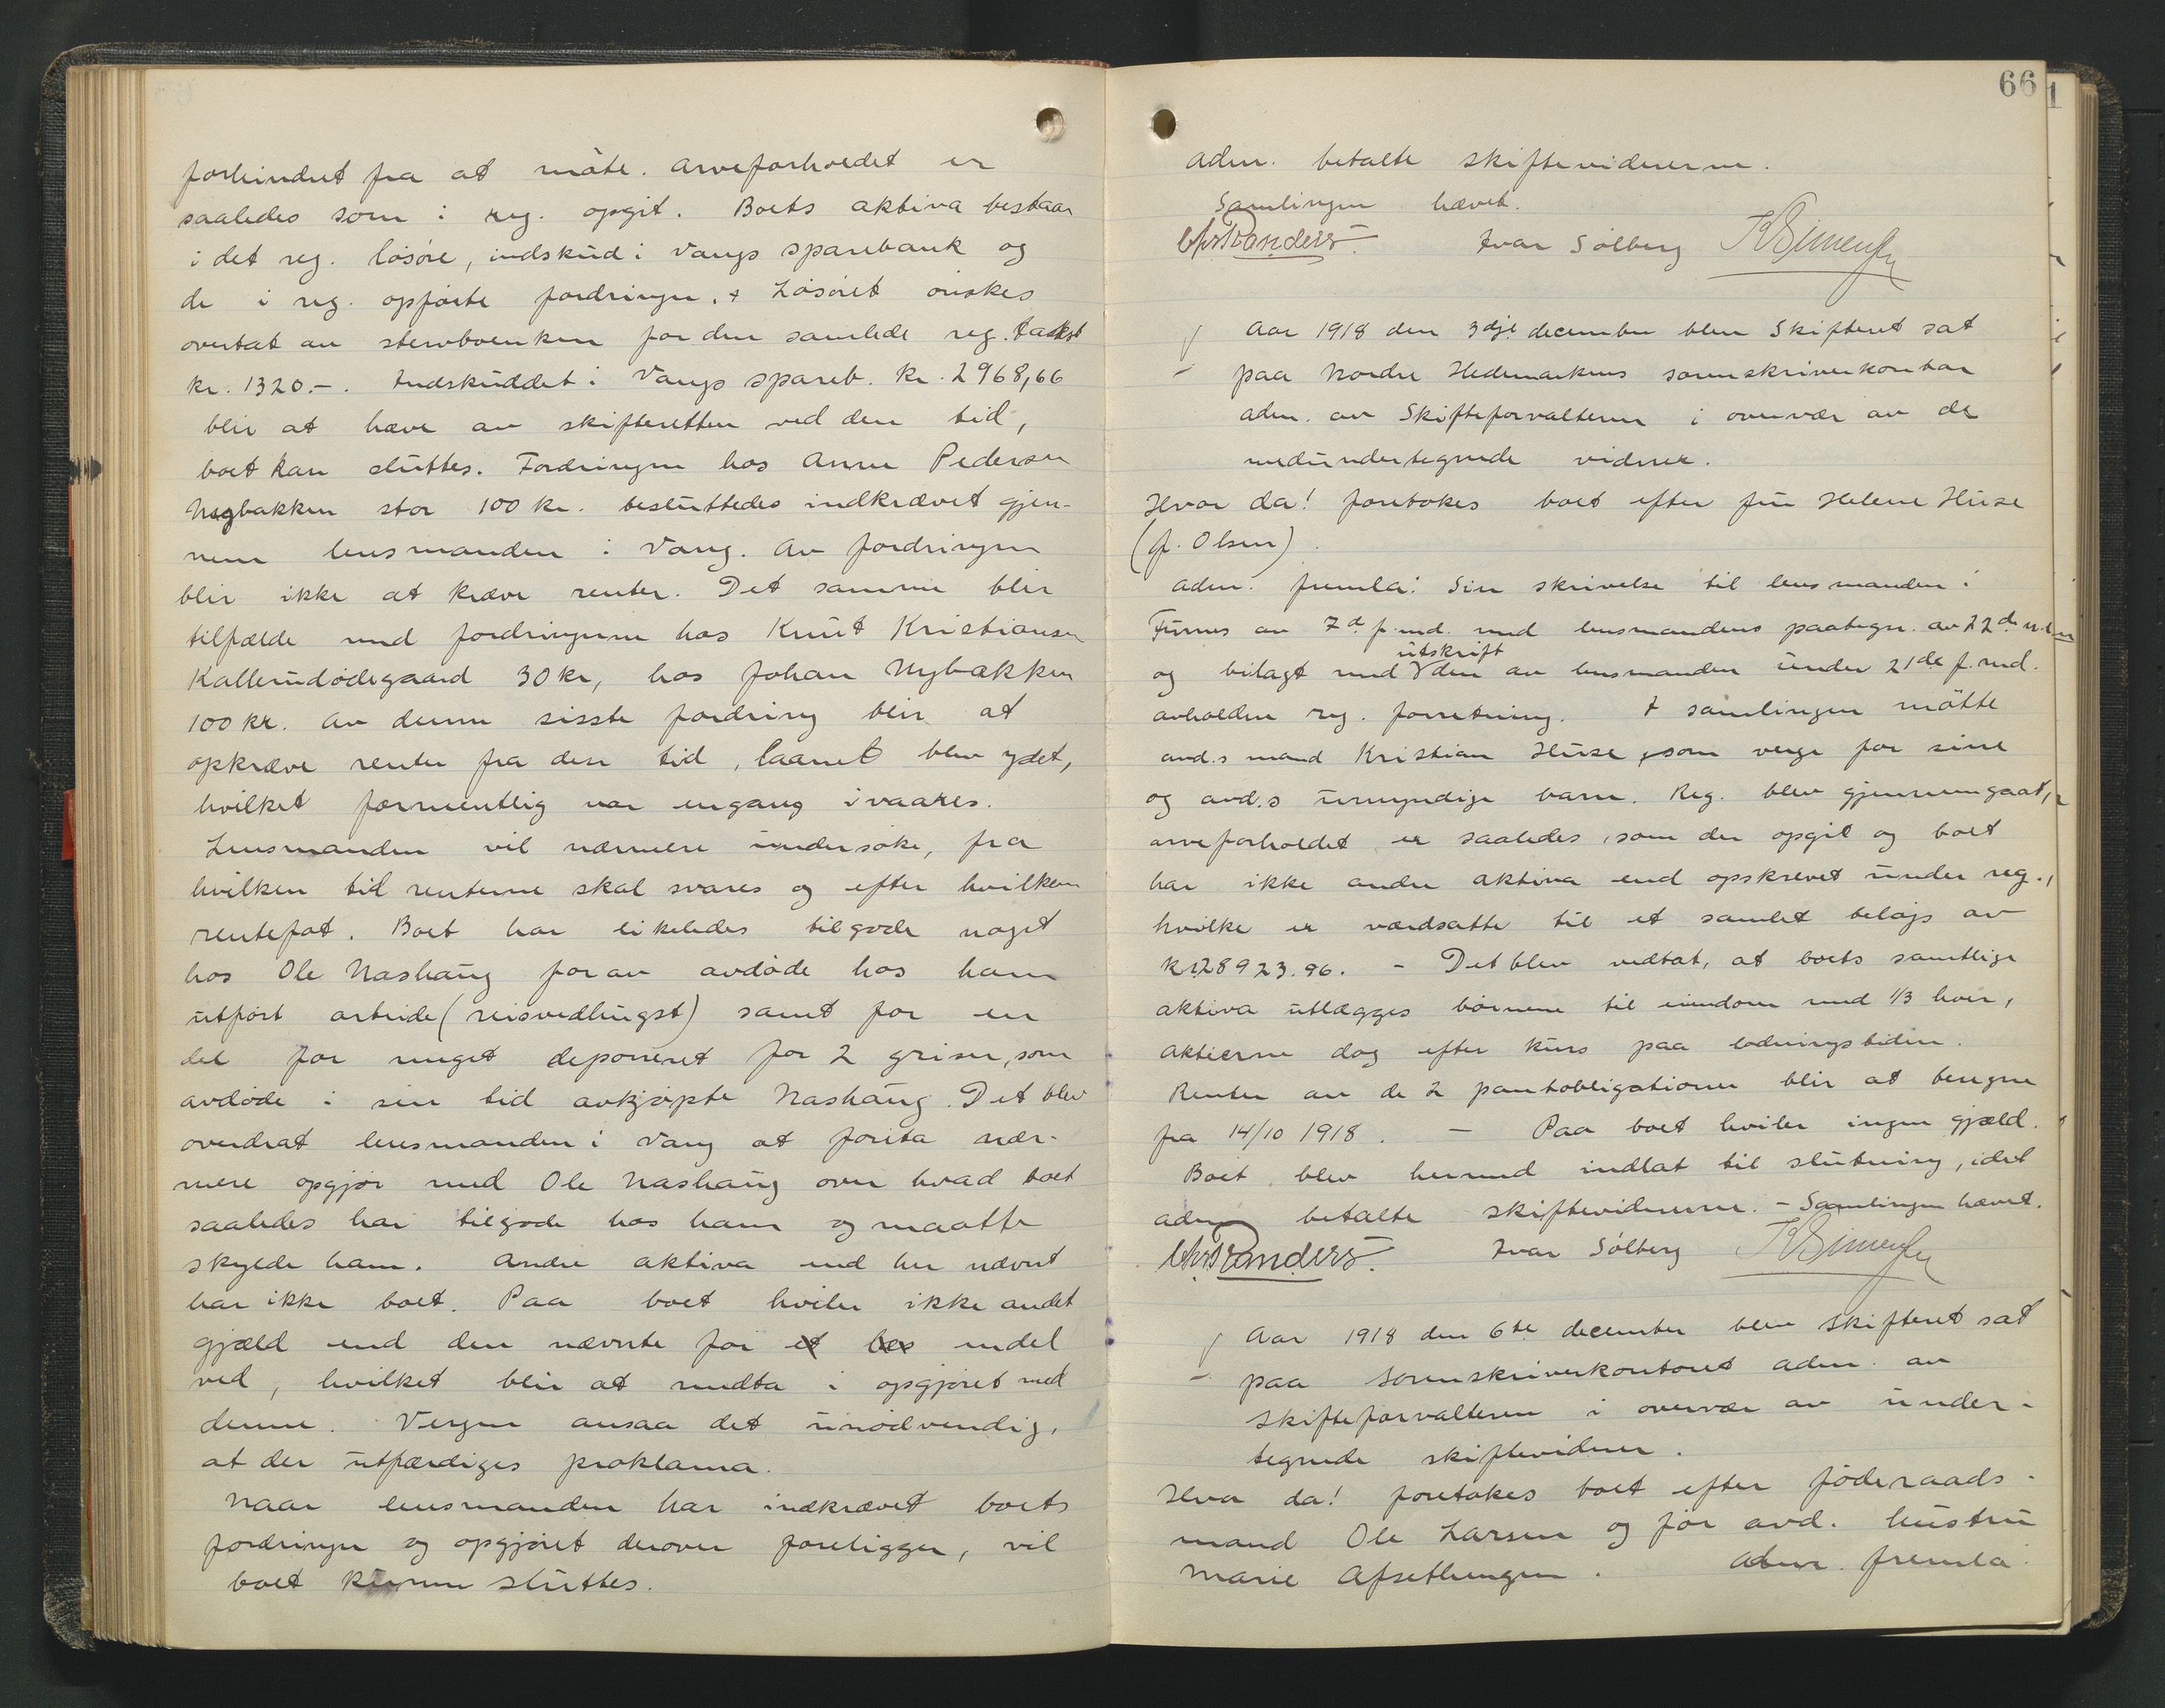 forhindret fra at møte. Arveforholdet er
saaledes som i reg. opgit. Boets aktiva bestaar
i det reg. løsøre, indskud i Vangs sparebank og
de i reg. opførte fordringer. Løsøret ønskes
overtat av stervboenken for den samlede reg. takst
kr. 1320.–. Indskuddet i Vangs spareb. kr. 2968,66
blir at hæve av skifteretten ved den tid,
boet kan sluttes. Fordringen hos Anne Pedersen
Nybakken stor 100 kr. besluttedes indkrævet gjen-
nem lensmanden i Vang. Av fordringen
blir ikke at kræve renter. Det samme blir
tilfælde med fordringerne hos Knut Kristiansen
Kallerudødegaard 30 kr, hos Johan Nybakken
100 kr. Av denne sisste fordring blir at
opkræve renter fra den tid, laanet blev ydet,
hvilket formentlig var engang ivaares.
Lensmanden vil nærmere undersøke, fra
hvilken tid renterne skal svares og efter hvilken
rentefot. Boet har likeledes tilgode noget
hos Ole Nashaug for av avdøde hos ham
utført arbeide (reisvedhugst) samt for en
del for meget deponeret for 2 griser, som
avdøde i sin tid avkjøpte Nashaug. Det blev
overdrat lensmanden i Vang at foreta nær-
mere opgjør med Ole Nashaug over hvad boet
saaledes har tilgode hos ham og maatte
skylde ham. Andre aktiva end her nævnt
har ikke boet. Paa boet hviler ikke andet
gjæld end den nævnte for et læs endel
ved, hvilket blir at medta i opgjøret med
denne. Vergen ansaa det unødvendig,
at der utfærdiges proklama.
Naar lensmanden har indkrævet boets
fordringer og opgjøret derover foreligger, vil
boet kunne sluttes.
66
Adm. betalte skiftevidnerne.
Samlingen hævet.
Chr Randers. Ivar Sølberg K Simensen
Aar 1918 den 3dje december blev Skifteret sat
paa Nordre Hedemarkens sorenskriverkontor
adm. av Skifteforvalteren i overvær av de
medundertegnede vidner.
Hvor da! foretokes boet efter fru Helene Huse
(f. Olsen).
Adm. fremla: Sin skrivelse til lensmanden i
Furnes av 7d f.md. med lensmandens paategn. av 22d
utskrift
og bilagt med den av lensmanden under 21de f.md.
avholdne reg. forretning. I samlingen møtte
avd.s mand Kristian Huse, som verge for sine
og avd.s umyndige barn. Reg. blev gjennemgaat,
arveforholdet er saaledes, som der opgit og boet
har ikke andre aktiva end opskrevet under reg.,
hvilke er værdsatte til et samlet beløp av
kr. 28923.96. – Det blev vedtat, at boets samtlige
aktiva utlægges børnene til eiendom med 1/3 hver,
Aktierne dog efter kurs paa lodningstiden.
Renter av de 2 pantobligationer blir at beregne
fra 14/10 1918. – Paa boet hviler ingen gjæld.
Boet blev hermed indlat til slutning, idet
adm. betalte skiftevidnerne. – Samlingen hævet.
Chr Randers. Ivar Sølberg K Simensen
Aar 1918 den 6te december blev skifteret sat
paa Sorenskriverkontoret adm. av
skifteforvalteren i overvær av under-
tegnede skiftevidner.
Hvor da! foretokes boet efter føderaads-
mand Ole Larsen og før avd. hustru
Marie Afsethengen. Adm. fremla: